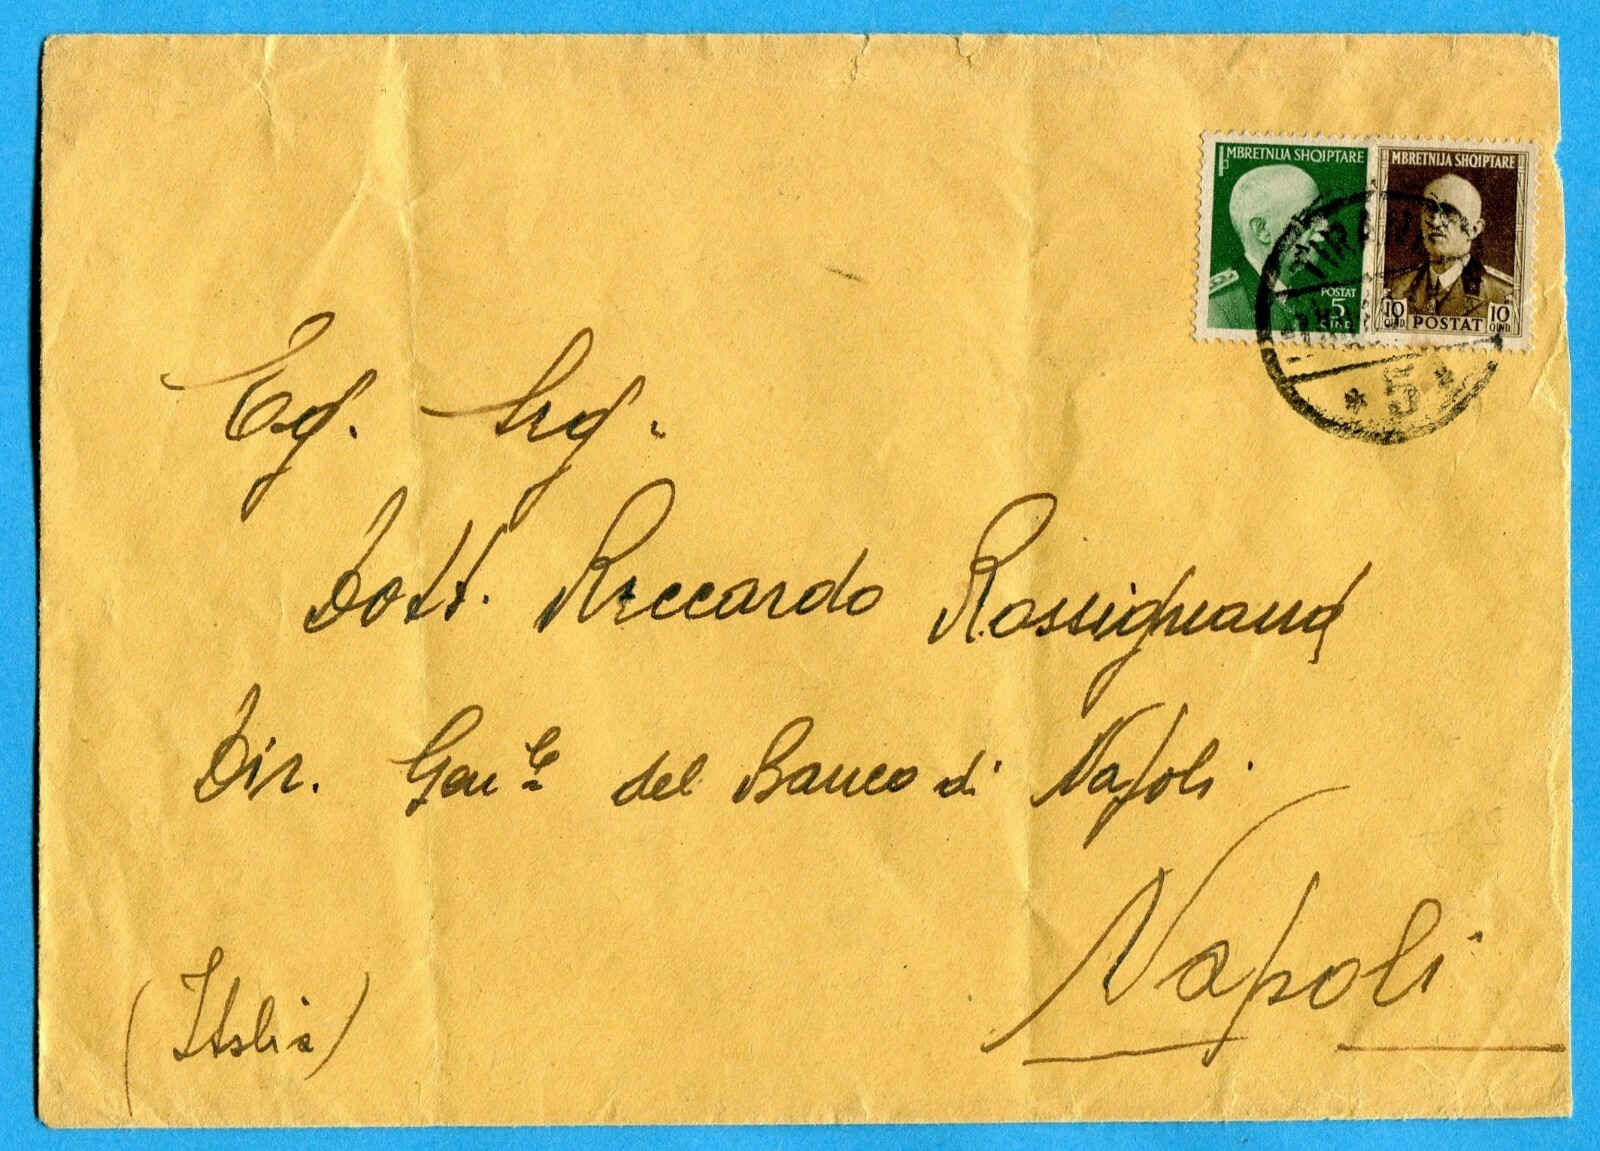 MBRETNIJA SHQIPTARE
POSTAT
5
QIND.
MBRETNIJA SHQIPTARE
10 QIND. POSTAT 10 QIND.
TIRANA
* 5 *
Eg. Sig.
Dott. Riccardo Rossignand
Dir. Genle del Banco di Napoli
Napoli
(Italia)